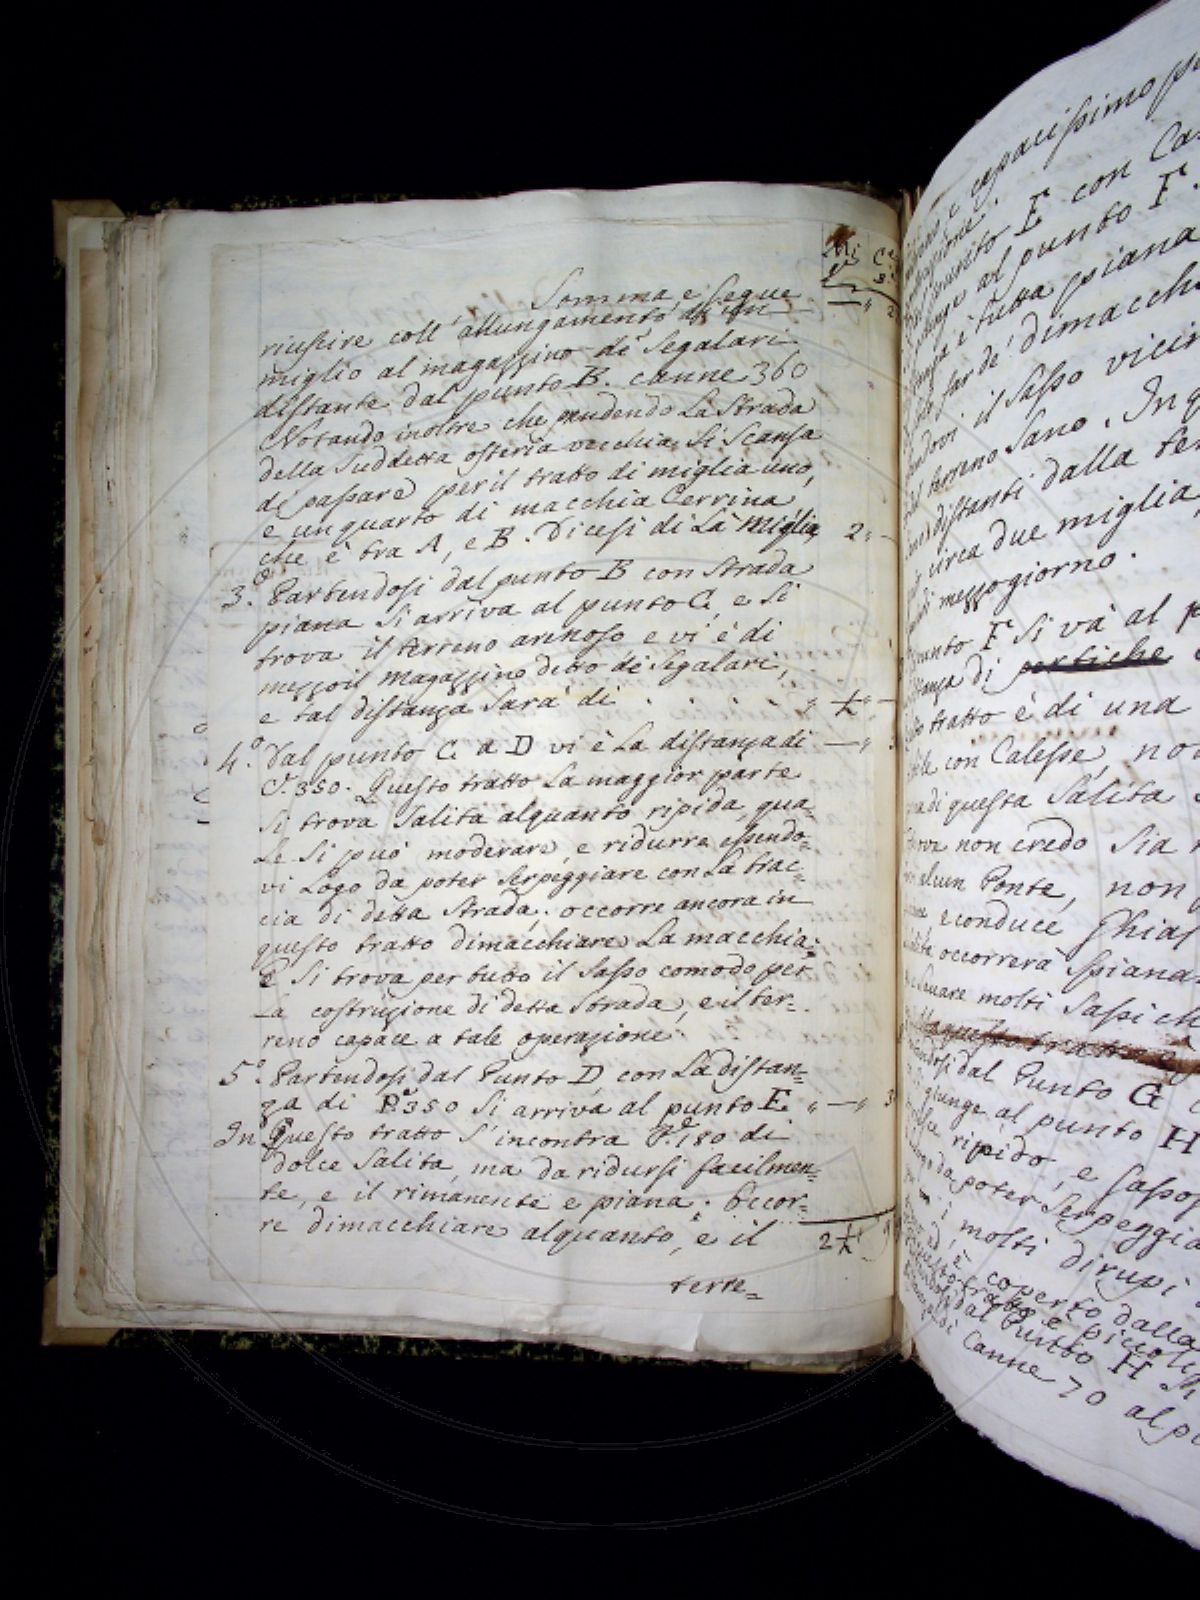 Mi Ce
Somma, e segue
riuscire coll'allungamento di un
miglio al magazzino de Segalari
distante dal punto B. canne 360
Notando inoltre che prendendo La Strada
della Suddetta osteria vecchia, Si Scansa
di passare per il tratto di miglia uno,
e un quarto di macchia Cerrina
che è tra A, e B. Dicesi di Là miglia 2
3.° Partendosi dal punto B con Strada
piana Si arriva al punto C, e Si
trova il terreno arenoso e vi è di
mezzo il magazzino detto de Segalari,
e tal distanza Sarà di . . " ½ "
4.° Dal punto C a D vi è La distanza di
C. 350. Questo tratto La maggior parte
Si trova Salita alquanto ripida, qua=
Le Si può moderare, e ridurre essendo=
vi Logo da poter Serpeggiare con La trac=
cia di detta Strada; occorre ancora in
questo tratto dimacchiare La macchia;
E Si trova per tutto il Sasso comodo per
La costruzione di detta Strada, e il ter=
reno capace a tale operazione.
5.° Partendosi dal Punto D con La distan=
za di P. 350 Si arriva al punto E " — " 3
In Questo tratto S'incontra P. 180 di
dolce Salita, ma da ridursi facilmen=
te, e il rimanente è piana. Occor=
re dimacchiare alquanto, e il
2 ½
terre=
e capacissimo
punto E con
al punto F.
è tutta piana
far de' dimacch
il Sasso vicin
terreno Sano. In q
distanti dalla
circa due miglia,
mezzogiorno.
punto F Si và al p
di pertiche
tratto è di una
con Calesse, no
di questa Salita
non credo Sia
alcun Ponte, non
e conduce Ghiaj
occorrerà Spiana=
molti Sassi ch
questo tratto
dal Punto G
giunge al punto H
ripido, e Sasso
da poter Serpeggia
molti dirupi
coperto dalla
tratto è piccol
dal Punto H
di Canne 70 al p